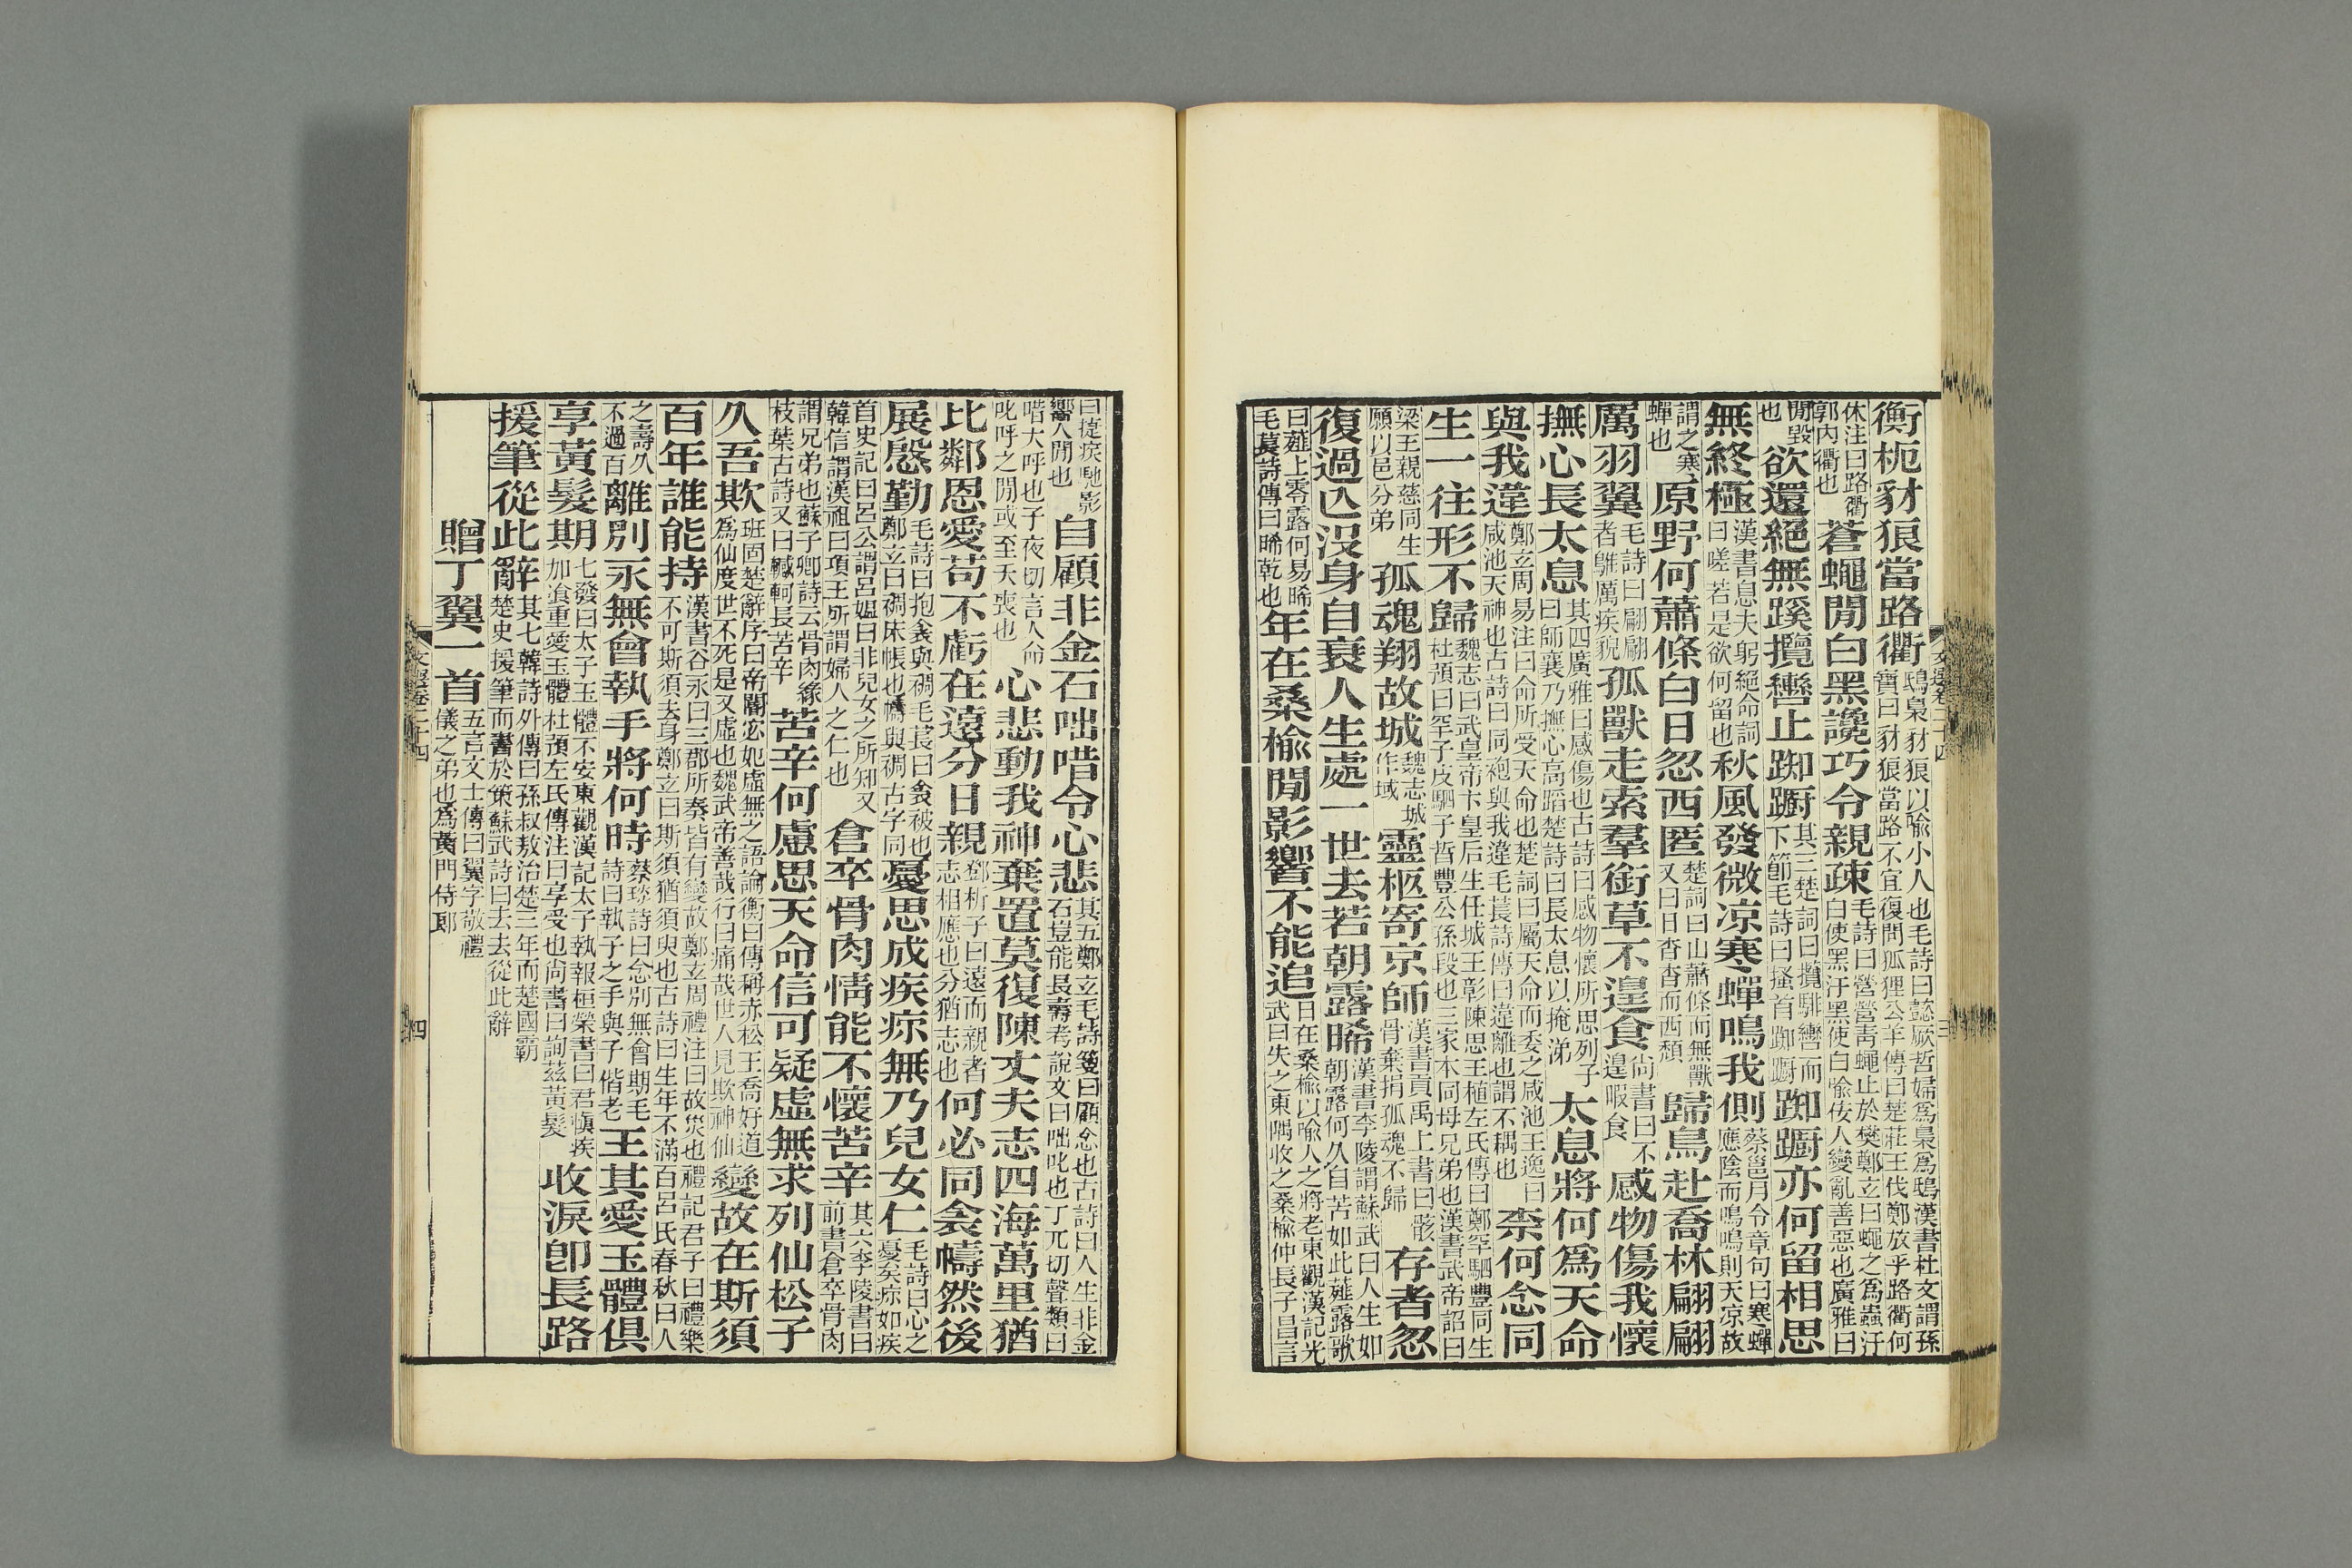 衡枙豺狼當路衢鴟梟豺狼以喻小人也毛詩曰懿厥哲婦爲梟爲鴟漢書杜文謂孫寶曰豺狼當路不宜復問狐狸公羊傳曰楚莊王伐鄭放乎路衢何
休注曰路衢郭內衢也蒼蠅閒白黑讒巧令親疎毛詩曰營營靑蠅止於樊鄭玄曰蠅之爲蟲汙白使黑汙黑使白喻佞人變亂善惡也廣雅曰
閒毀也欲還絕無蹊攬轡止踟躕其三楚詞曰攬騑轡而下節毛詩曰搔首踟躕踟躕亦何留相思
無終極漢書息夫躬絕命詞曰嗟若是欲何留也秋風發微凉寒蟬鳴我側蔡邕月令章句曰寒蟬應陰而鳴鳴則天凉故
謂之寒蟬也原野何蕭條白日忽西匿楚詞曰山蕭條而無獸又曰日杳杳而西頽歸鳥赴喬林翩翩
厲羽翼毛詩曰翩翩者鵻厲疾貌孤獸走索羣銜草不遑食尚書曰不遑暇食感物傷我懷
撫心長太息其四廣雅曰感傷也古詩曰感物懷所思列子曰師襄乃撫心高蹈楚詩曰長太息以掩涕太息將何爲天命
與我違鄭玄周易注曰命所受天命也楚詞曰屬天命而委之咸池王逸曰咸池天神也古詩曰同袍與我違毛萇詩傳曰違離也謂不耦也柰何念同
生一往形不歸魏志曰武皇帝卞皇后生任城王彰陳思王植左氏傳曰鄭罕駟豐同生杜預曰罕子皮駟子晳豐公孫段也三家本同母兄弟也漢書武帝詔曰
梁王親慈同生願以邑分弟孤魂翔故城魏志城作域靈柩寄京師漢書貢禹上書曰骸骨棄捐孤魂不歸存者忽
復過亾沒身自衰人生處一世去若朝露晞漢書李陵謂蘇武曰人生如朝露何久自苦如此薤露歌
曰薤上零露何易晞毛萇詩傳曰晞乾也年在桑楡閒影響不能追日在桑楡以喻人之將老東觀漢記光武曰失之東隅收之桑楡仲長子昌言
曰捷疾馳影響人閒也自顧非金石咄唶令心悲其五鄭玄毛詩箋曰顧念也古詩曰人生非金石豈能長壽考說文曰咄叱也丁兀切聲類曰
唶大呼也子夜切言人命叱呼之閒或至夭喪也心悲動我神棄置莫復陳丈夫志四海萬里猶
比鄰恩愛苟不虧在遠分日親鄧析子曰遠而親者志相應也分猶志也何必同衾幬然後
展慇勤毛詩曰抱衾與裯毛萇曰衾被也鄭玄曰裯床帳也幬與裯古字同憂思成疾疢無乃兒女仁毛詩曰心之憂矣疢如疾
首史記曰呂公謂呂媼曰非兒女之所知又韓信謂漢祖曰項王所謂婦人之仁也倉卒骨肉情能不懷苦辛其六李陵書曰前書倉卒骨肉
謂兄弟也蘇子卿詩云骨肉緣枝葉古詩又曰轗軻長苦辛苦辛何慮思天命信可疑虛無求列仙松子
久吾欺班固楚辭序曰帝閽宓妃虛無之語論衡曰傳稱赤松王喬好道爲仙度世不死是又虛也魏武帝善哉行曰痛哉世人見欺神仙變故在斯須
百年誰能持漢書谷永曰三郡所奏皆有變故鄭玄周禮注曰故災也禮記君子曰禮樂不可斯須去身鄭玄曰斯須猶須臾也古詩曰生年不滿百呂氏春秋曰人
之壽久不過百離別永無會執手將何時蔡琰詩曰念別無會期毛詩曰執子之手與子偕老王其愛玉體俱
享黃髮期七發曰太子玉體不安東觀漢記太子執報桓榮書曰君愼疾加飡重愛玉體杜預左氏傳注曰享受也尚書曰詢茲黃髮收淚卽長路
援筆從此辭其七韓詩外傳曰孫叔敖治楚三年而楚國霸楚史援筆而書於策蘇武詩曰去去從此辭
贈丁翼一首五言文士傳曰翼字敬禮儀之弟也爲黃門侍郎
文選卷二十四
三
文選卷二十四
四